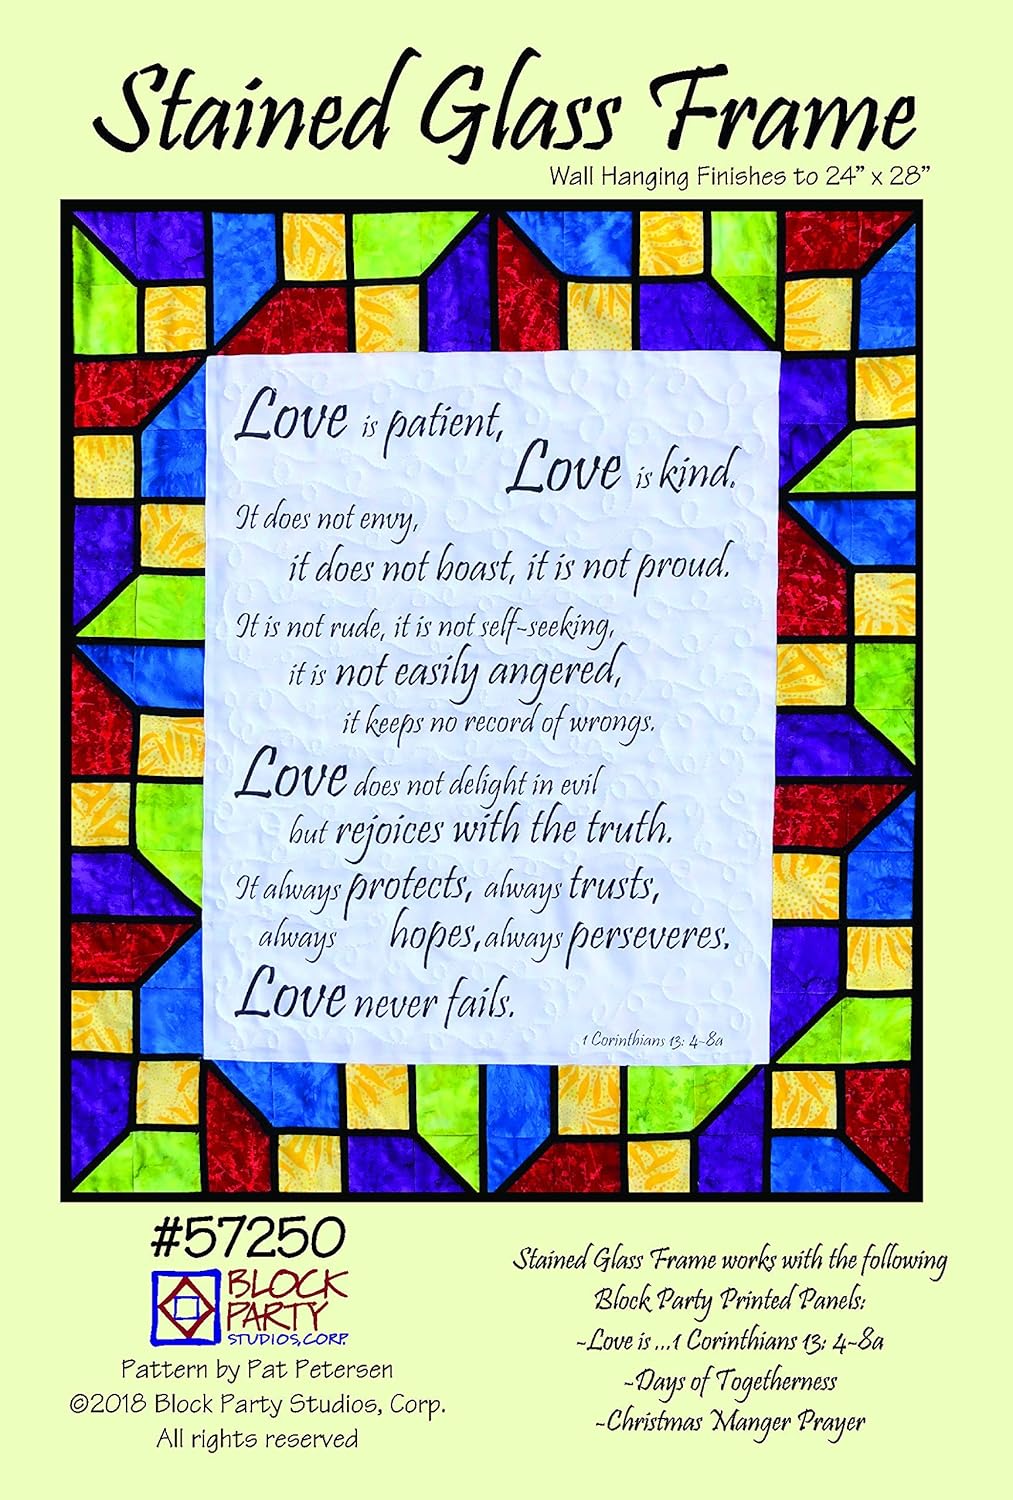 Stained Glass Frame
Wall Hanging Finishes to 24" x 28"
Love is patient,
Love is kind.
It does not envy,
it does not boast, it is not proud.
It is not rude, it is not self-seeking,
it is not easily angered,
it keeps no record of wrongs.
Love does not delight in evil
but rejoices with the truth.
It always protects, always trusts,
always hopes, always perseveres.
Love never fails.
1 Corinthians 13: 4-8a
#57250
BLOCK
PARTY
STUDIOS, CORP.
Pattern by Pat Petersen
©2018 Block Party Studios, Corp.
All rights reserved
Stained Glass Frame works with the following
Block Party Printed Panels:
~Love is ...1 Corinthians 13: 4-8a
~Days of Togetherness
~Christmas Manger Prayer